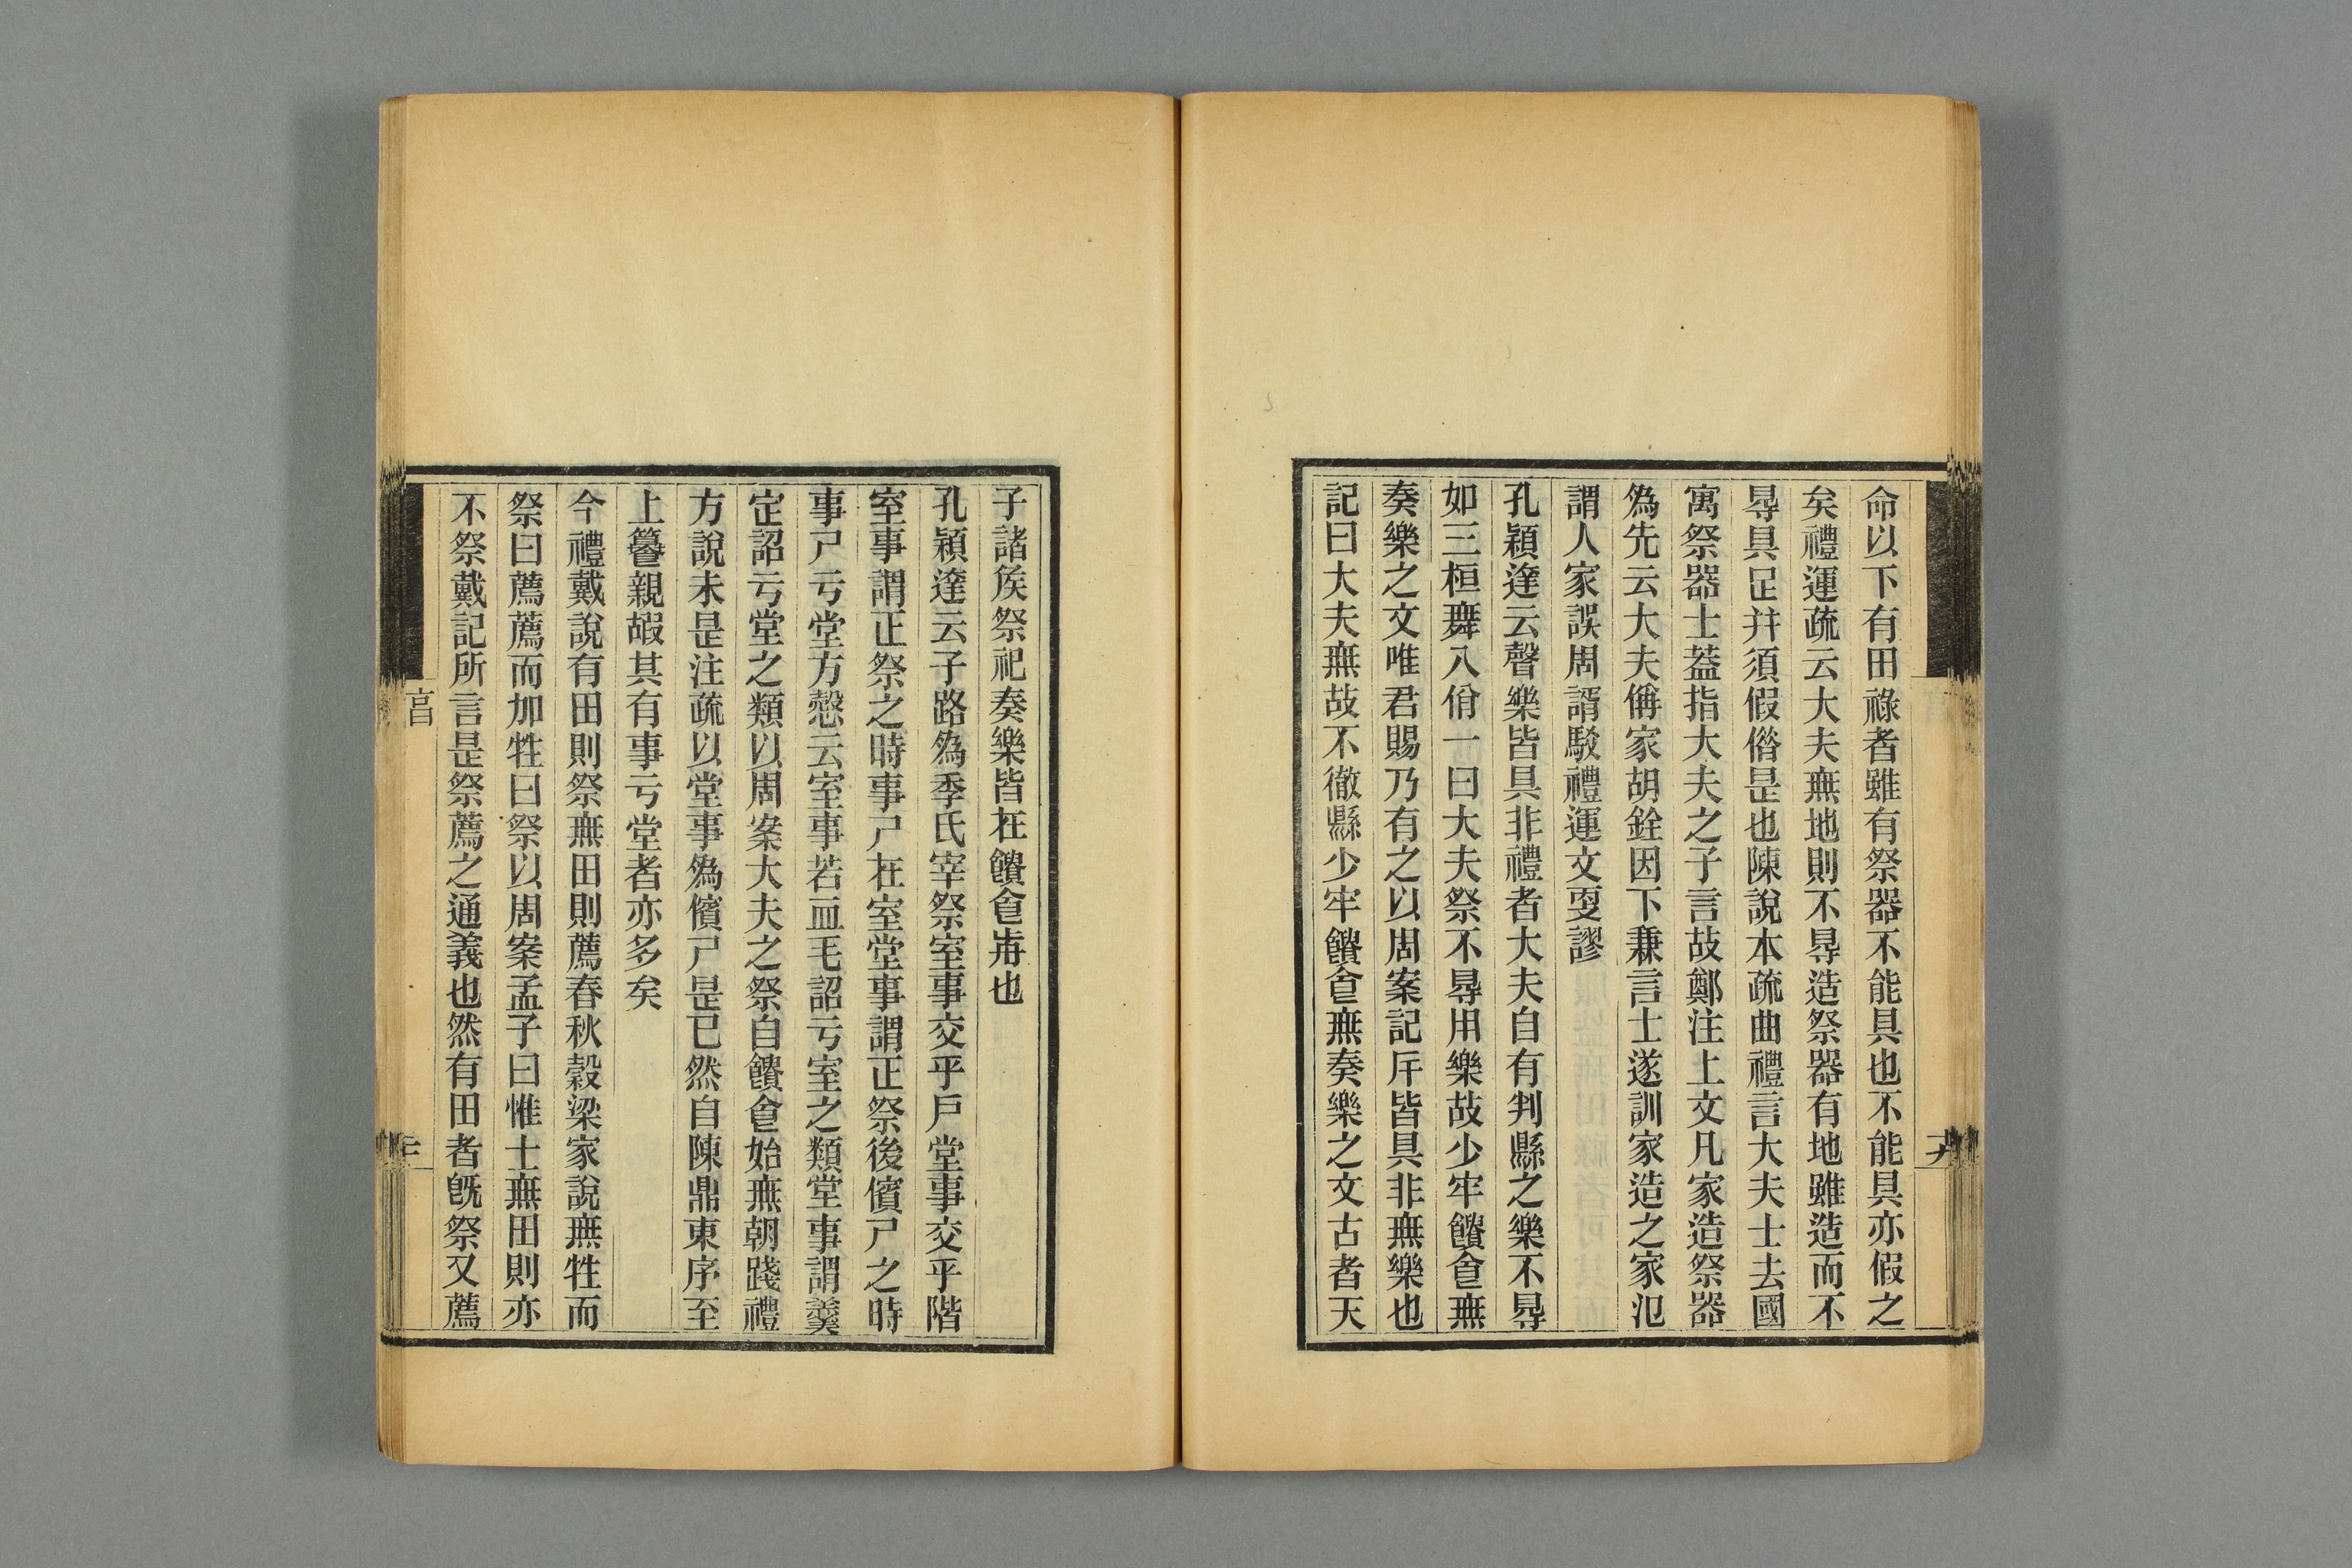 命以下有田祿者雖有祭器不能具也不能具亦假之
矣禮運疏云大夫無地則不㝵造祭器有地雖造而不
㝵具足幷須假僭是也陳說本疏曲禮言大夫士去國
寓祭器士葢指大夫之子言故鄭注上文凡家造祭器
爲先云大夫偁家胡銓因下兼言士遂訓家造之家氾
謂人家誤周謂駁禮運文叓謬
孔穎達云聲樂皆具非禮者大夫自有判縣之樂不㝵
如三桓舞八佾一曰大夫祭不㝵用樂故少牢饋㑹無
奏樂之文唯君賜乃有之以周案記斥皆具非無樂也
記曰大夫無故不徹縣少牢饋㑹無奏樂之文古者天
子諸矦祭祀奏樂皆在饋㑹歬也
孔穎達云子路爲季氏宰祭室事交乎戶堂事交乎階
室事謂正祭之時事尸在室堂事謂正祭後儐尸之時
事尸亏堂方慤云室事若血毛詔亏室之類堂事謂羹
定詔亏堂之類以周案大夫之祭自饋㑹始無朝踐禮
方說未是注疏以堂事爲儐尸是已然自陳鼎東序至
上籑親嘏其有事亏堂者亦多矣
今禮戴說有田則祭無田則薦春秋穀梁家說無牲而
祭曰薦薦而加牲曰祭以周案孟子曰惟士無田則亦
不祭戴記所言是祭薦之通義也然有田者旣祭又薦